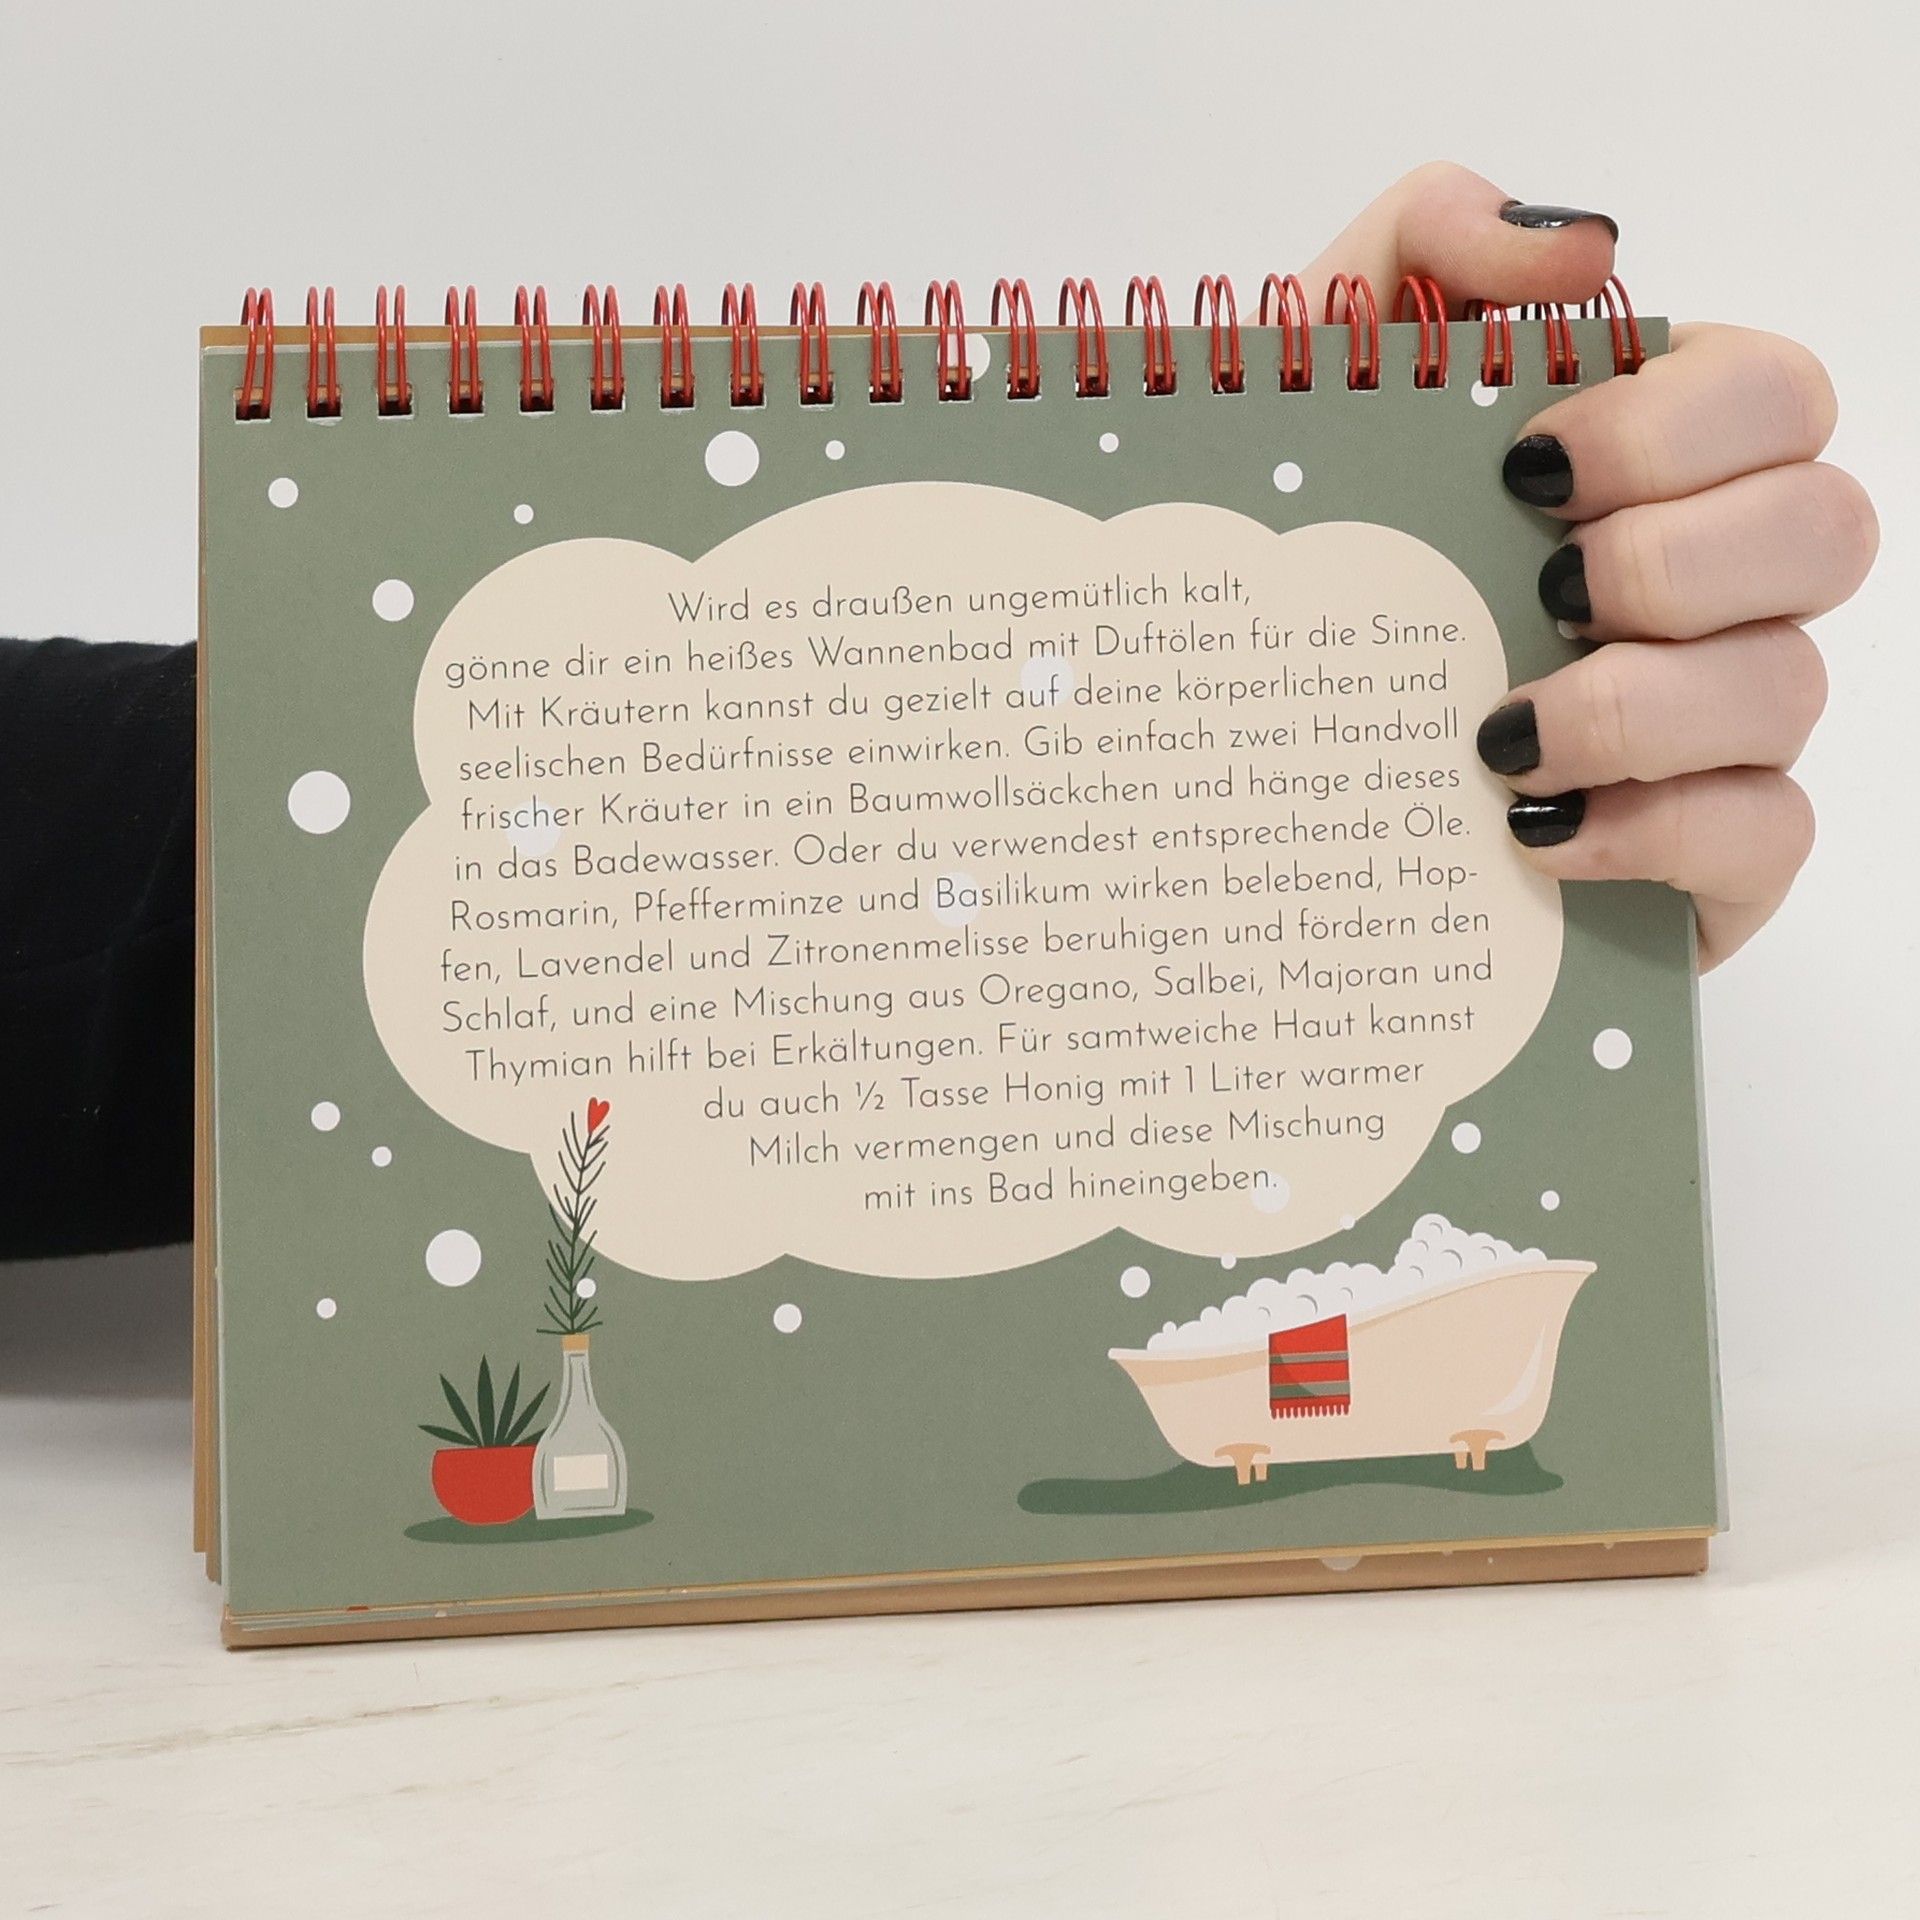 Wird es draußen ungemütlich kalt,
gönne dir ein heißes Wannenbad mit Duftölen für die Sinne.
Mit Kräutern kannst du gezielt auf deine körperlichen und
seelischen Bedürfnisse einwirken. Gib einfach zwei Handvoll
frischer Kräuter in ein Baumwollsäckchen und hänge dieses
in das Badewasser. Oder du verwendest entsprechende Öle.
Rosmarin, Pfefferminze und Basilikum wirken belebend, Hop-
fen, Lavendel und Zitronenmelisse beruhigen und fördern den
Schlaf, und eine Mischung aus Oregano, Salbei, Majoran und
Thymian hilft bei Erkältungen. Für samtweiche Haut kannst
du auch ½ Tasse Honig mit 1 Liter warmer
Milch vermengen und diese Mischung
mit ins Bad hineingeben.